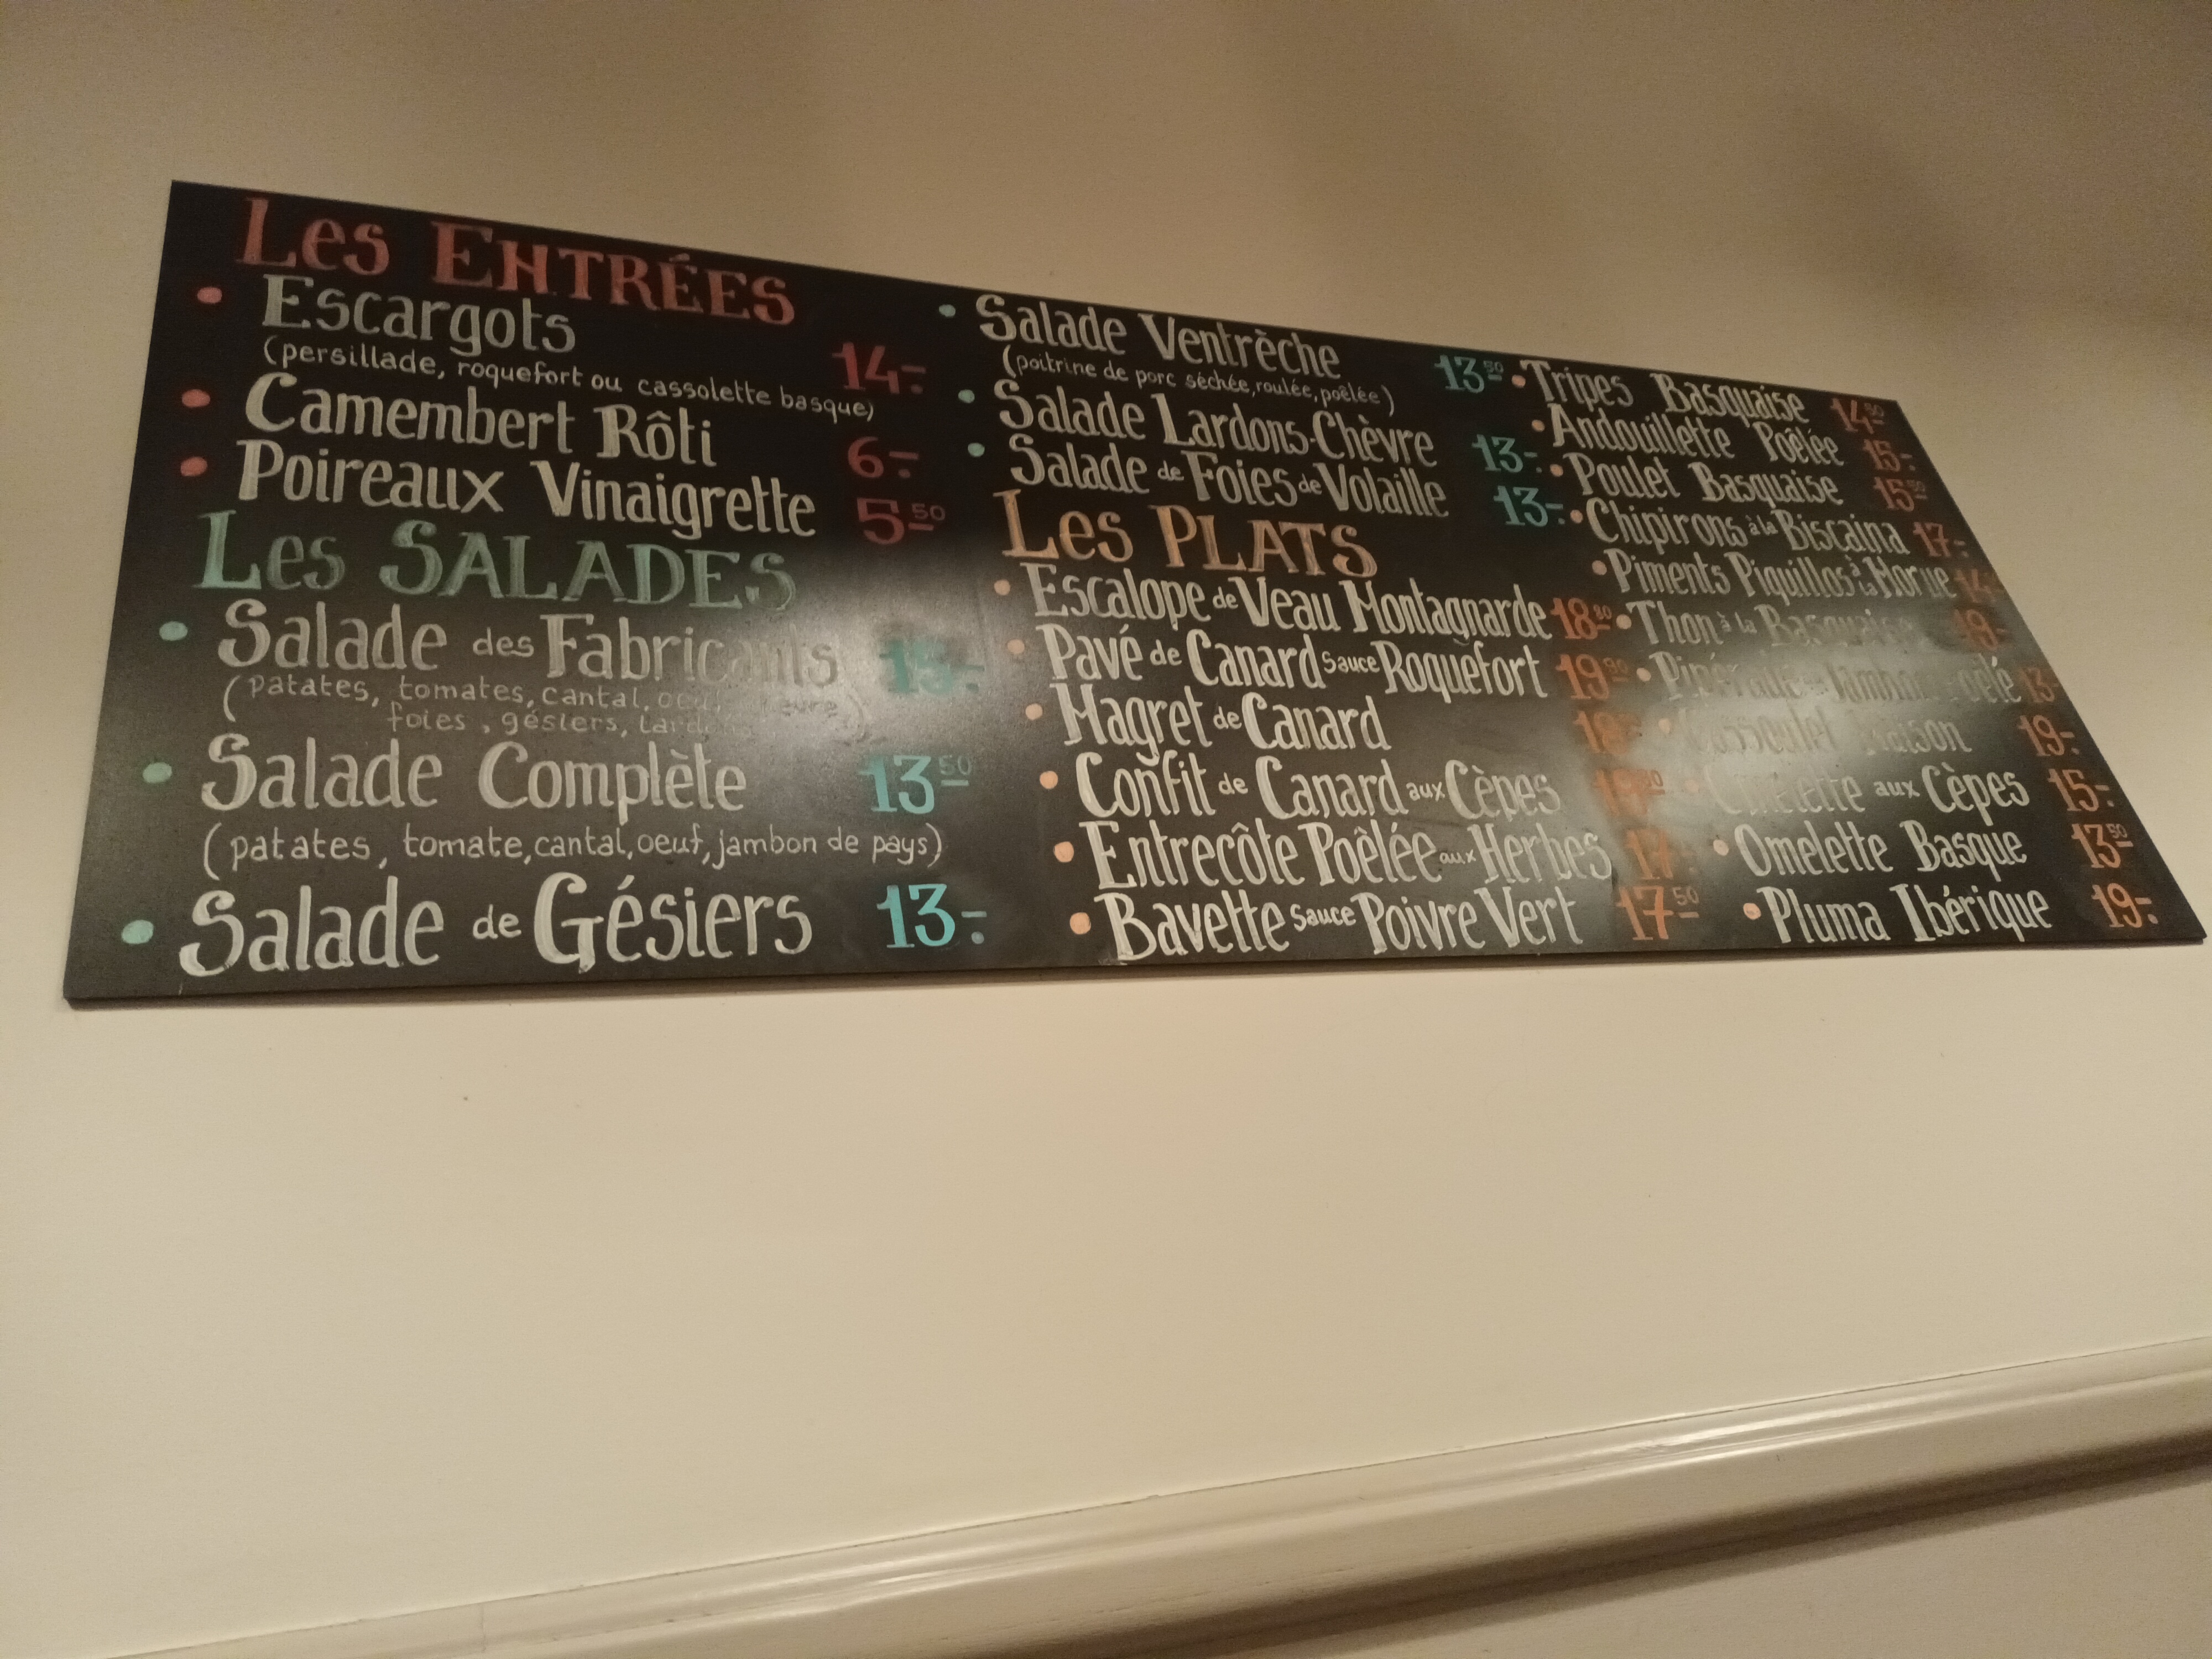 Les ENTRÉES
• Escargots 14.-
(persillade, roquefort ou cassolette basque)
• Camembert Rôti 6.-
• Poireaux Vinaigrette 5 50
Les SALADES
• Salade des Fabricants 15.-
(patates, tomates, cantal,
foies, gésiers,
• Salade Complète 13 50
(patates, tomate, cantal, oeuf, jambon de pays)
• Salade de Gésiers 13.-
• Salade Ventrèche 13 50
(poitrine de porc séchée, roulée, poêlée)
• Salade Lardons-Chèvre 13.-
• Salade de Foies de Volaille 13.-
Les PLATS
• Escalope de Veau Montagnarde 18
• Pavé de Canard Sauce Roquefort 19 90
• Magret de Canard
• Confit de Canard aux Cèpes
• Entrecôte Poêlée aux Herbes 17
• Bavette Sauce Poivre Vert 17 50
• Tripes Basquaise 14 50
• Andouillette Poêlée 15.-
• Poulet Basquaise 15 50
• Chipirons à la Biscaina 17.-
• Piments Piquillos à la Morue 14
• Thon à la Basquaise
• Pipérade Jambon Poêlé 13
• Cassoulet Maison 19.-
• Omelette aux Cèpes 15.-
• Omelette Basque 13 50
• Pluma Ibérique 19.-